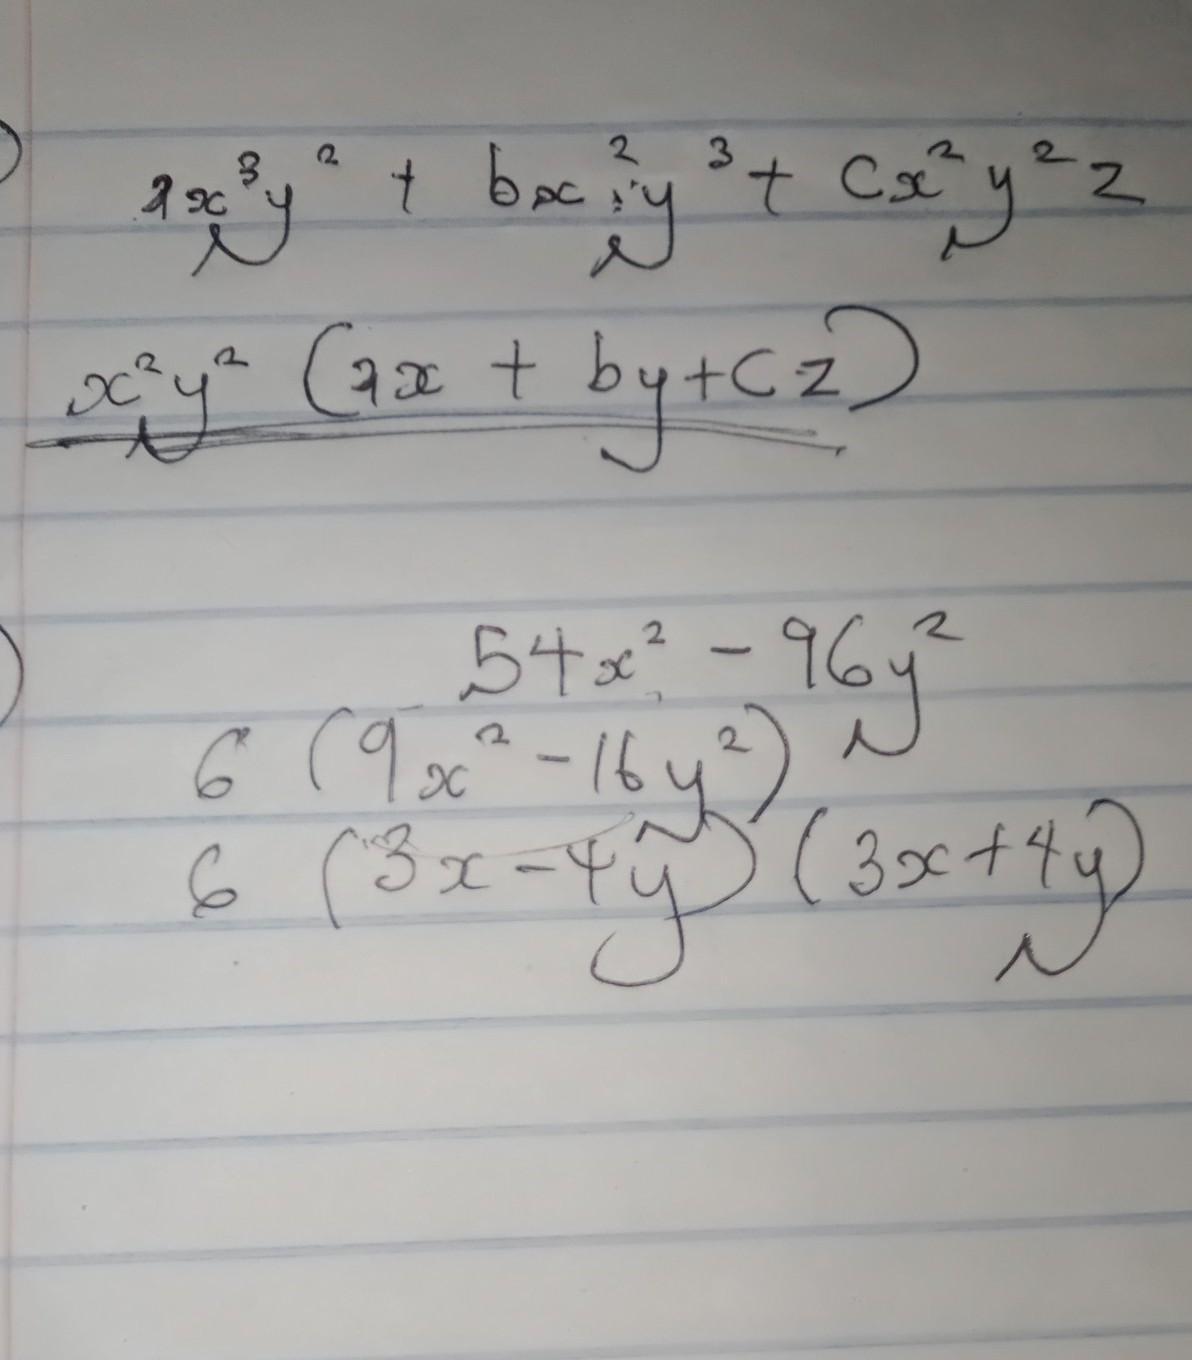 2x³y² + bx²y³ + cx²y²z
x²y² (2x + by + cz)
54x² - 96y²
6 (9x² - 16y²)
6 (3x - 4y) (3x + 4y)